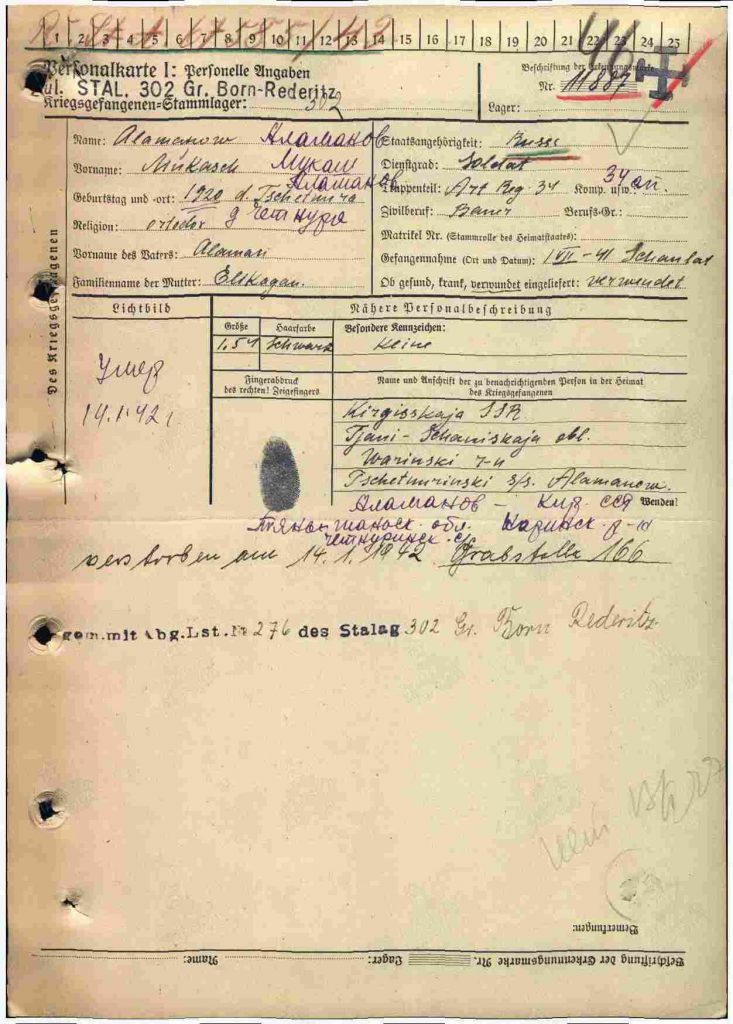 1 2 3 4 5 6 7 8 9 10 11 12 13 14 15 16 17 18 19 20 21 22 23 24 25
Personalkarte I: Personelle Angaben
STAL. 302 Gr. Born-Rederitz
Kriegsgefangenen-Stammlager: 302
Beschriftung der Erkennungsmarke
Nr. 11887
Lager:
Des Kriegsgefangenen
Name: Alamanow Аламанов
Vorname: Mukasch Мукаш
Аламанов
Geburtstag und -ort: 1920 d. Tschetnura
Religion: ortodox д Четнура
Vorname des Vaters: Alaman
Familienname der Mutter:
Staatsangehörigkeit: Russe
Dienstgrad: Soldat
Truppenteil: Art Reg. 34 Komp. usw.: 34
Zivilberuf: Bauer Berufs-Gr.:
Matrikel Nr. (Stammrolle des Heimatstaates):
Gefangennahme (Ort und Datum): VII-41
Ob gesund, krank, verwundet eingeliefert: verwendet
Lichtbild
Умер
14.1.42 г
Nähere Personalbeschreibung
Größe Haarfarbe Besondere Kennzeichen:
1.54 Schwarz Keine
Fingerabdruck
des rechten! Zeigefingers
Name und Anschrift der zu benachrichtigenden Person in der Heimat
des Kriegsgefangenen
Kirgisskaja SSR
Tjani-Schaniskaja obl.
Warinski r-n
Tschetnurinski s/s. Alamanow.
Wenden!
Аламанов - Кир. ССР
Тяньшаньск. обл. Наринск. р-н
Четнуринск. с/с
verstorben am 14.1.1942 Grabstelle 166
gem. mit Abg. Lst. № 276 des Stalag 302 Gr. Born Rederitz
Bemerkungen:
Beschriftung der Erkennungsmarke Nr. Lager: Name: